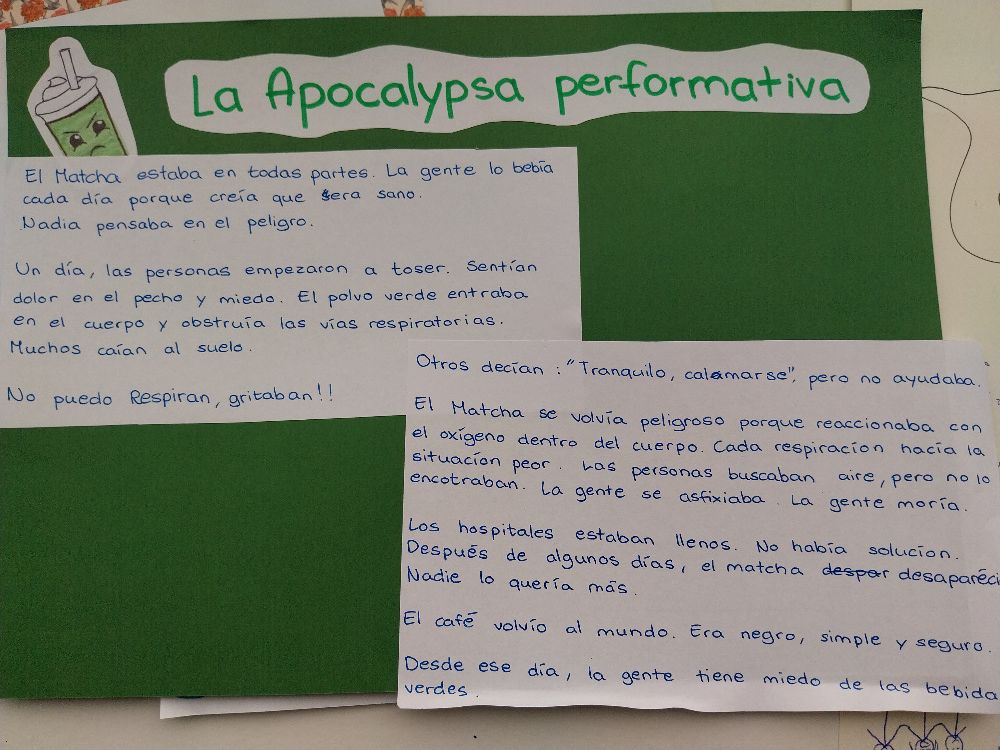 La Apocalypsa performativa
El Matcha estaba en todas partes. La gente lo bebía
cada día porque creía que era sano.
Nadia pensaba en el peligro.
Un día, las personas empezaron a toser. Sentían
dolor en el pecho y miedo. El polvo verde entraba
en el cuerpo y obstruía las vías respiratorias.
Muchos caían al suelo.
No puedo Respiran, gritaban!!
Otros decían: "Tranquilo, calamarse", pero no ayudaba.
El Matcha se volvía peligroso porque reaccionaba con
el oxígeno dentro del cuerpo. Cada respiracíon hacía la
situacíon peor. Las personas buscaban aire, pero no lo
encotraban. La gente se asfixiaba. La gente moría.
Los hospitales estaban llenos. No había solucíon.
Después de algunos días, el matcha despar desapareci
Nadie lo quería más.
El café volvío al mundo. Era negro, simple y seguro.
Desde ese día, la gente tiene miedo de las bebida
verdes.